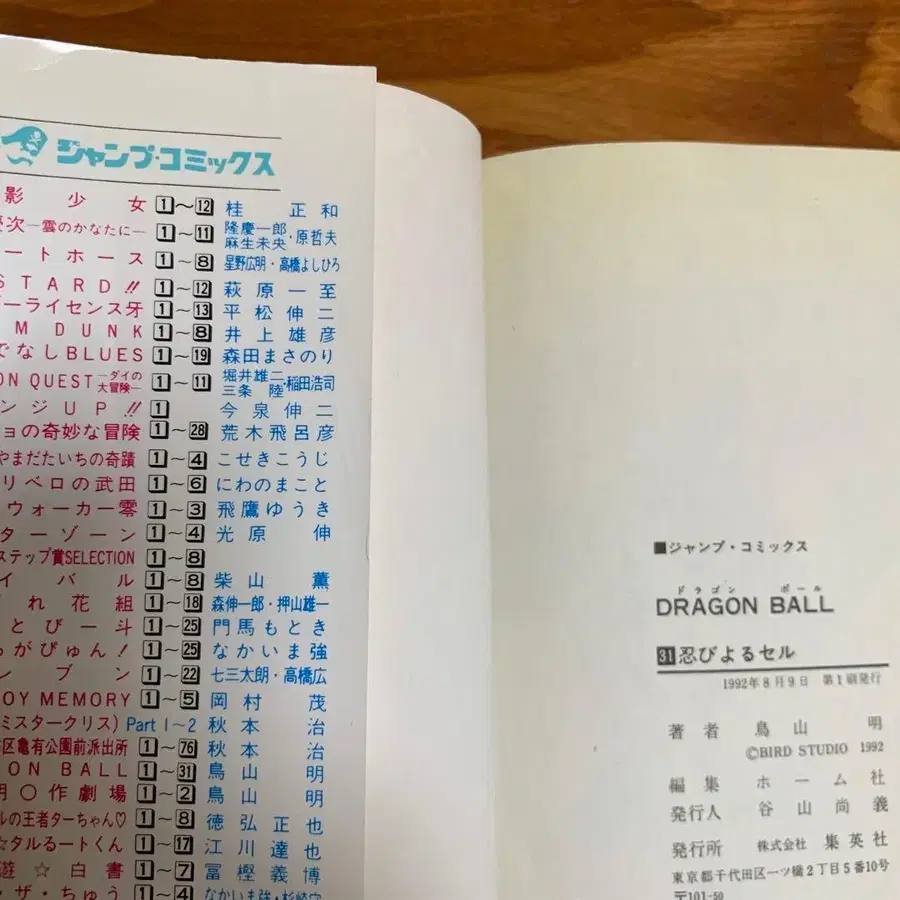 ジャンプ・コミックス
影少女 1～12 桂正和
慶次―雲のかなたに― 1～11 隆慶一郎・麻生未央・原哲夫
ートホース 1～8 星野広明・高橋よしひろ
STARD!! 1～12 萩原一至
ーライセンス牙 1～13 平松伸二
M DUNK 1～8 井上雄彦
でなしBLUES 1～19 森田まさのり
ON QUEST―ダイの大冒険― 1～11 堀井雄二・三条陸・稲田浩司
ンジUP!! 1 今泉伸二
ョの奇妙な冒険 1～28 荒木飛呂彦
やまだたいちの奇蹟 1～4 こせきこうじ
リベロの武田 1～6 にわのまこと
ウォーカー零 1～3 飛鷹ゆうき
ターゾーン 1～4 光原伸
ステップ賞SELECTION 1～8
イバル 1～8 柴山薫
れ花組 1～18 森伸一郎・押山雄一
とび一斗 1～25 門馬もとき
がぴゅん! 1～25 なかいま強
ンブン 1～22 七三太朗・高橋広
OY MEMORY 1～5 岡村茂
(ミスタークリス) Part 1～2 秋本治
区亀有公園前派出所 1～76 秋本治
ON BALL 1～31 鳥山明
明〇作劇場 1～2 鳥山明
ルの王者ターちゃん♡ 1～8 徳弘正也
☆タルるートくん 1～17 江川達也
遊☆白書 1～7 冨樫義博
・ザ・ちゅう 1～4 なかいま強・
■ジャンプ・コミックス
ドラゴン ボール
DRAGON BALL
31忍びよるセル
1992年8月9日 第1刷発行
著者 鳥山明
©BIRD STUDIO 1992
編集 ホーム社
発行人 谷山尚義
発行所 株式会社 集英社
東京都千代田区一ツ橋2丁目5番10号
〒101-50